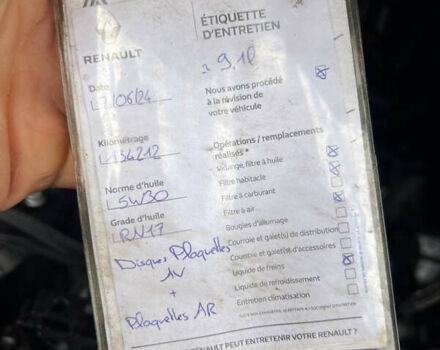 ÉTIQUETTE
D'ENTRETIEN
RENAULT
9.1l
Date
7/06/24
Nous avons procédé
à la révision de
votre véhicule
Kilométrage
134212
Opérations / remplacements
réalisés *
Vidange, filtre à huile
Filtre habitacle
Filtre à carburant
Filtre à air
Bougies d'allumage
Courroie et galet(s) de distribution
Courroie et galet(s) d'accessoires
Liquide de freins
Liquide de refroidissement
Entretien climatisation
Norme d'huile
5W30
Grade d'huile
RN17
Disques Plaquettes
AV
+
Plaquettes AR
RENAULT PEUT ENTRETENIR VOTRE RENAULT !